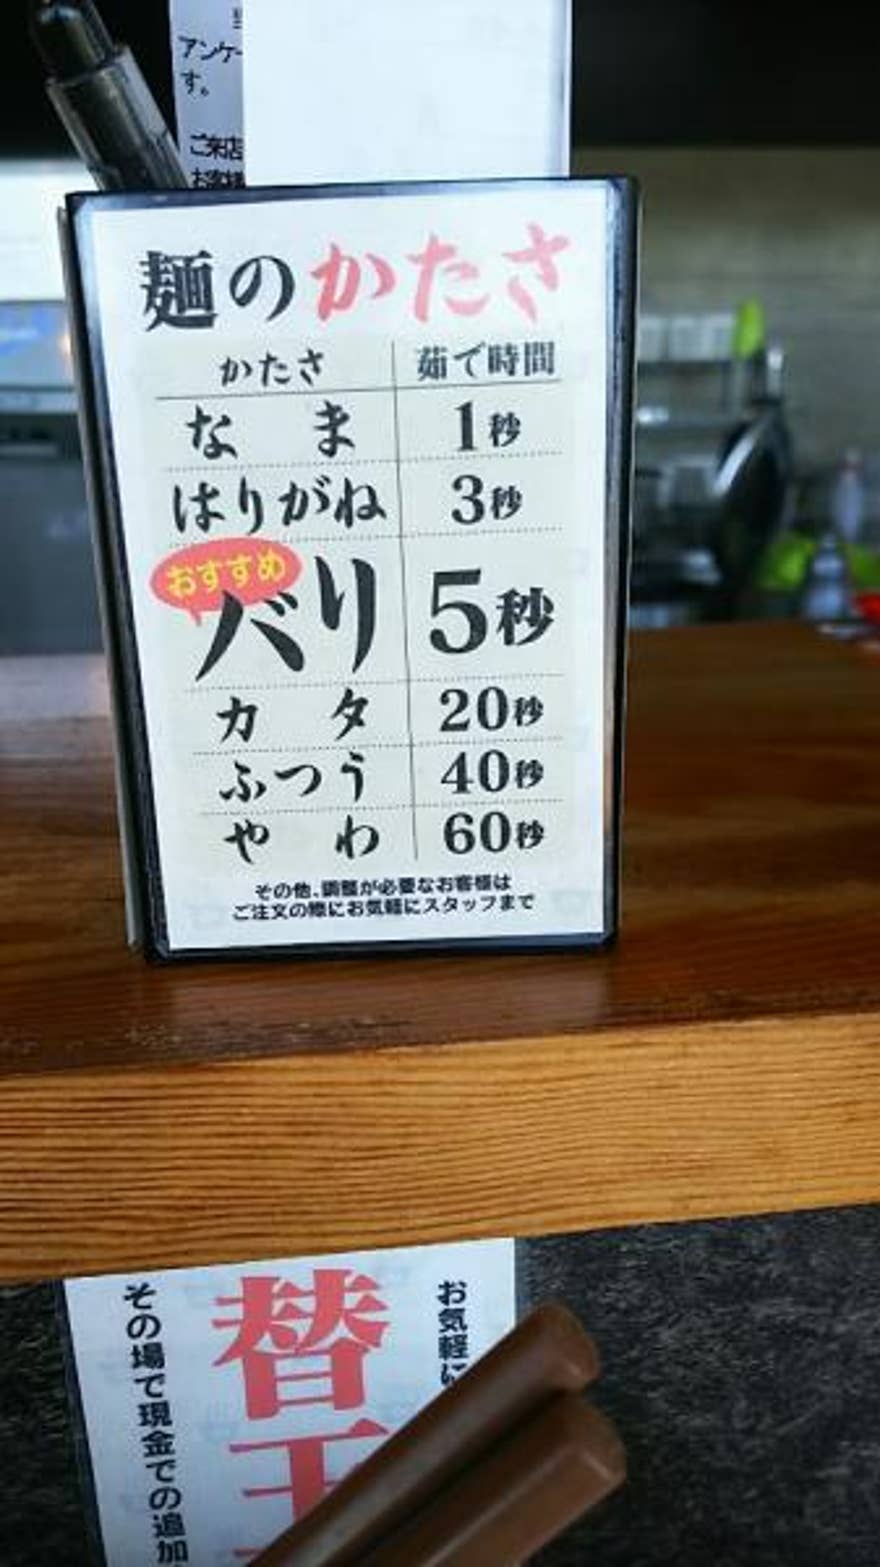 アンケー
す。
ご来店
お客様
麺のかたさ
かたさ 茹で時間
なま 1秒
はりがね 3秒
おすすめ
バリ 5秒
カタ 20秒
ふつう 40秒
やわ 60秒
その他、調整が必要なお客様は
ご注文の際にお気軽にスタッフまで
お気軽に
替玉
その場で現金での追加